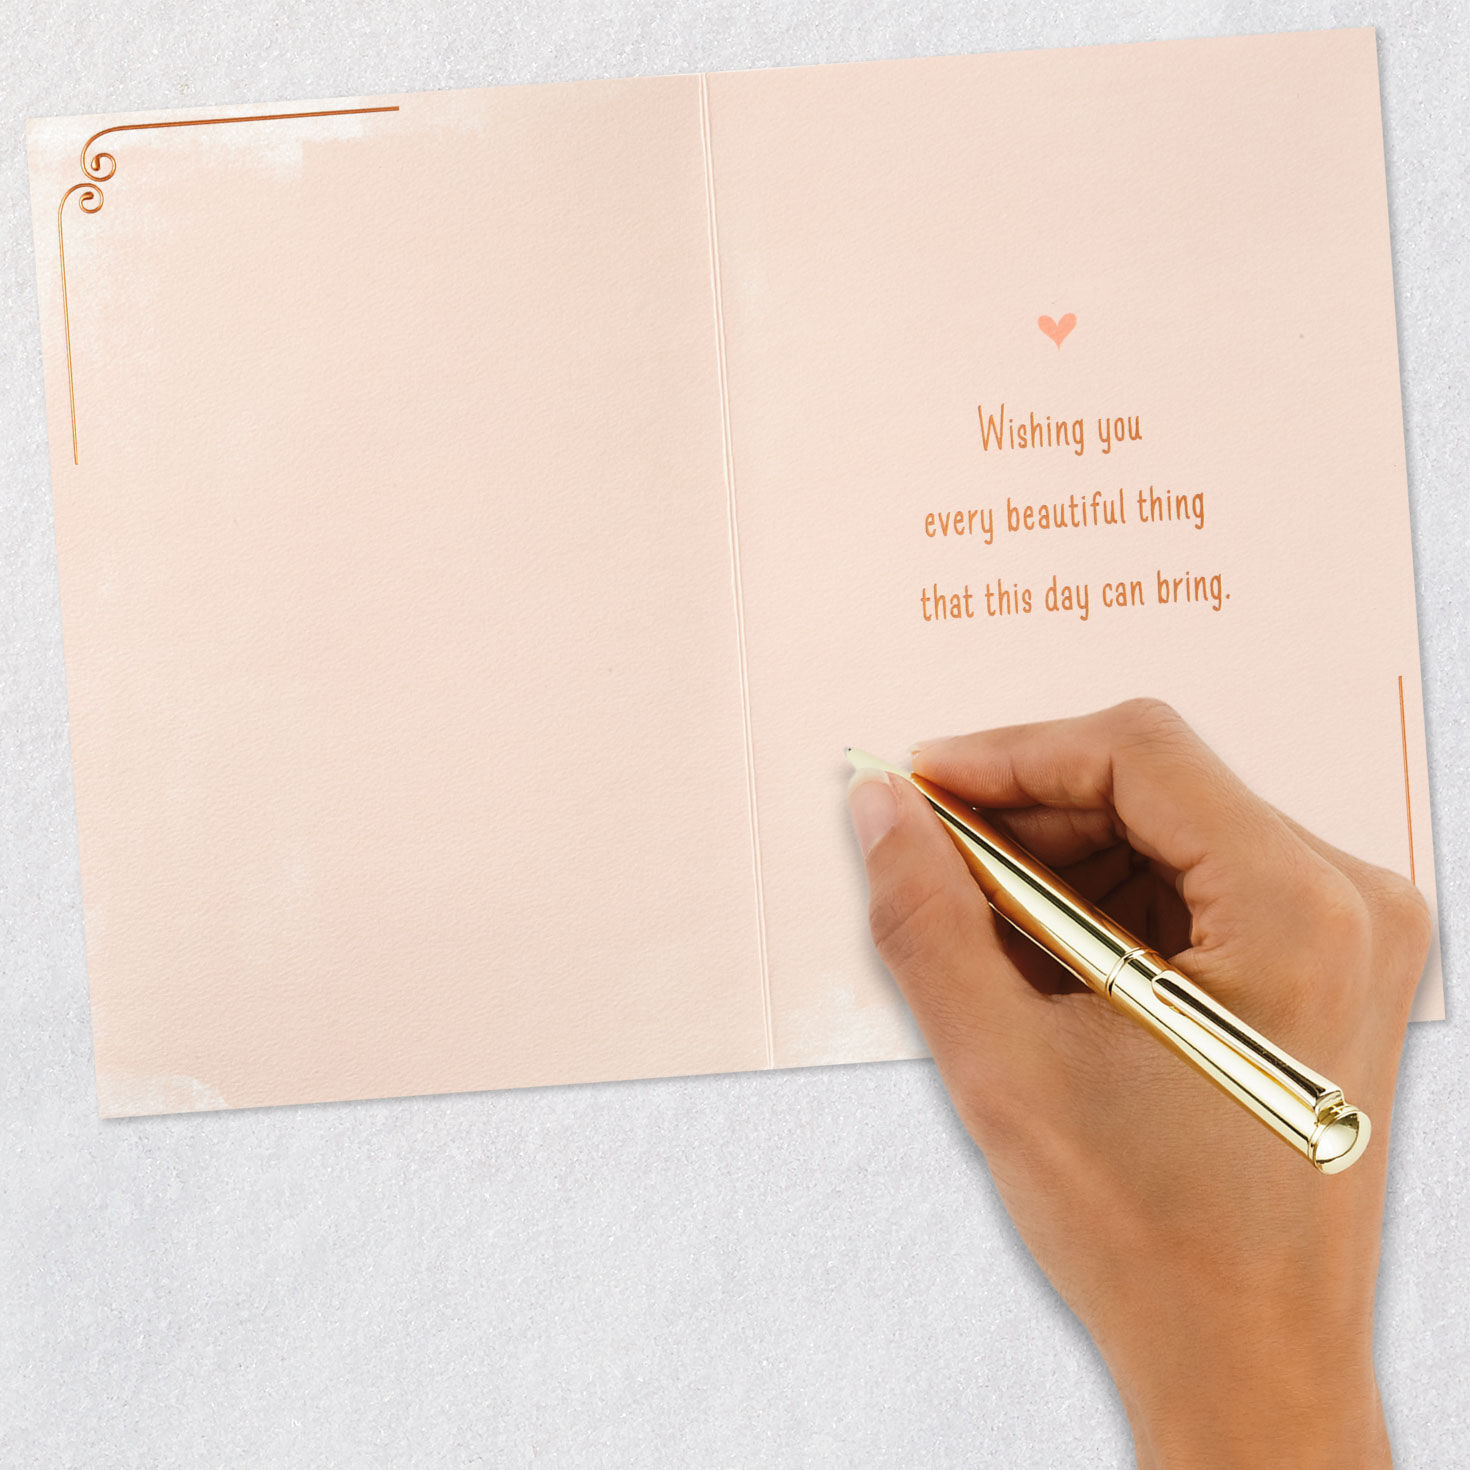 Wishing you
every beautiful thing
that this day can bring.